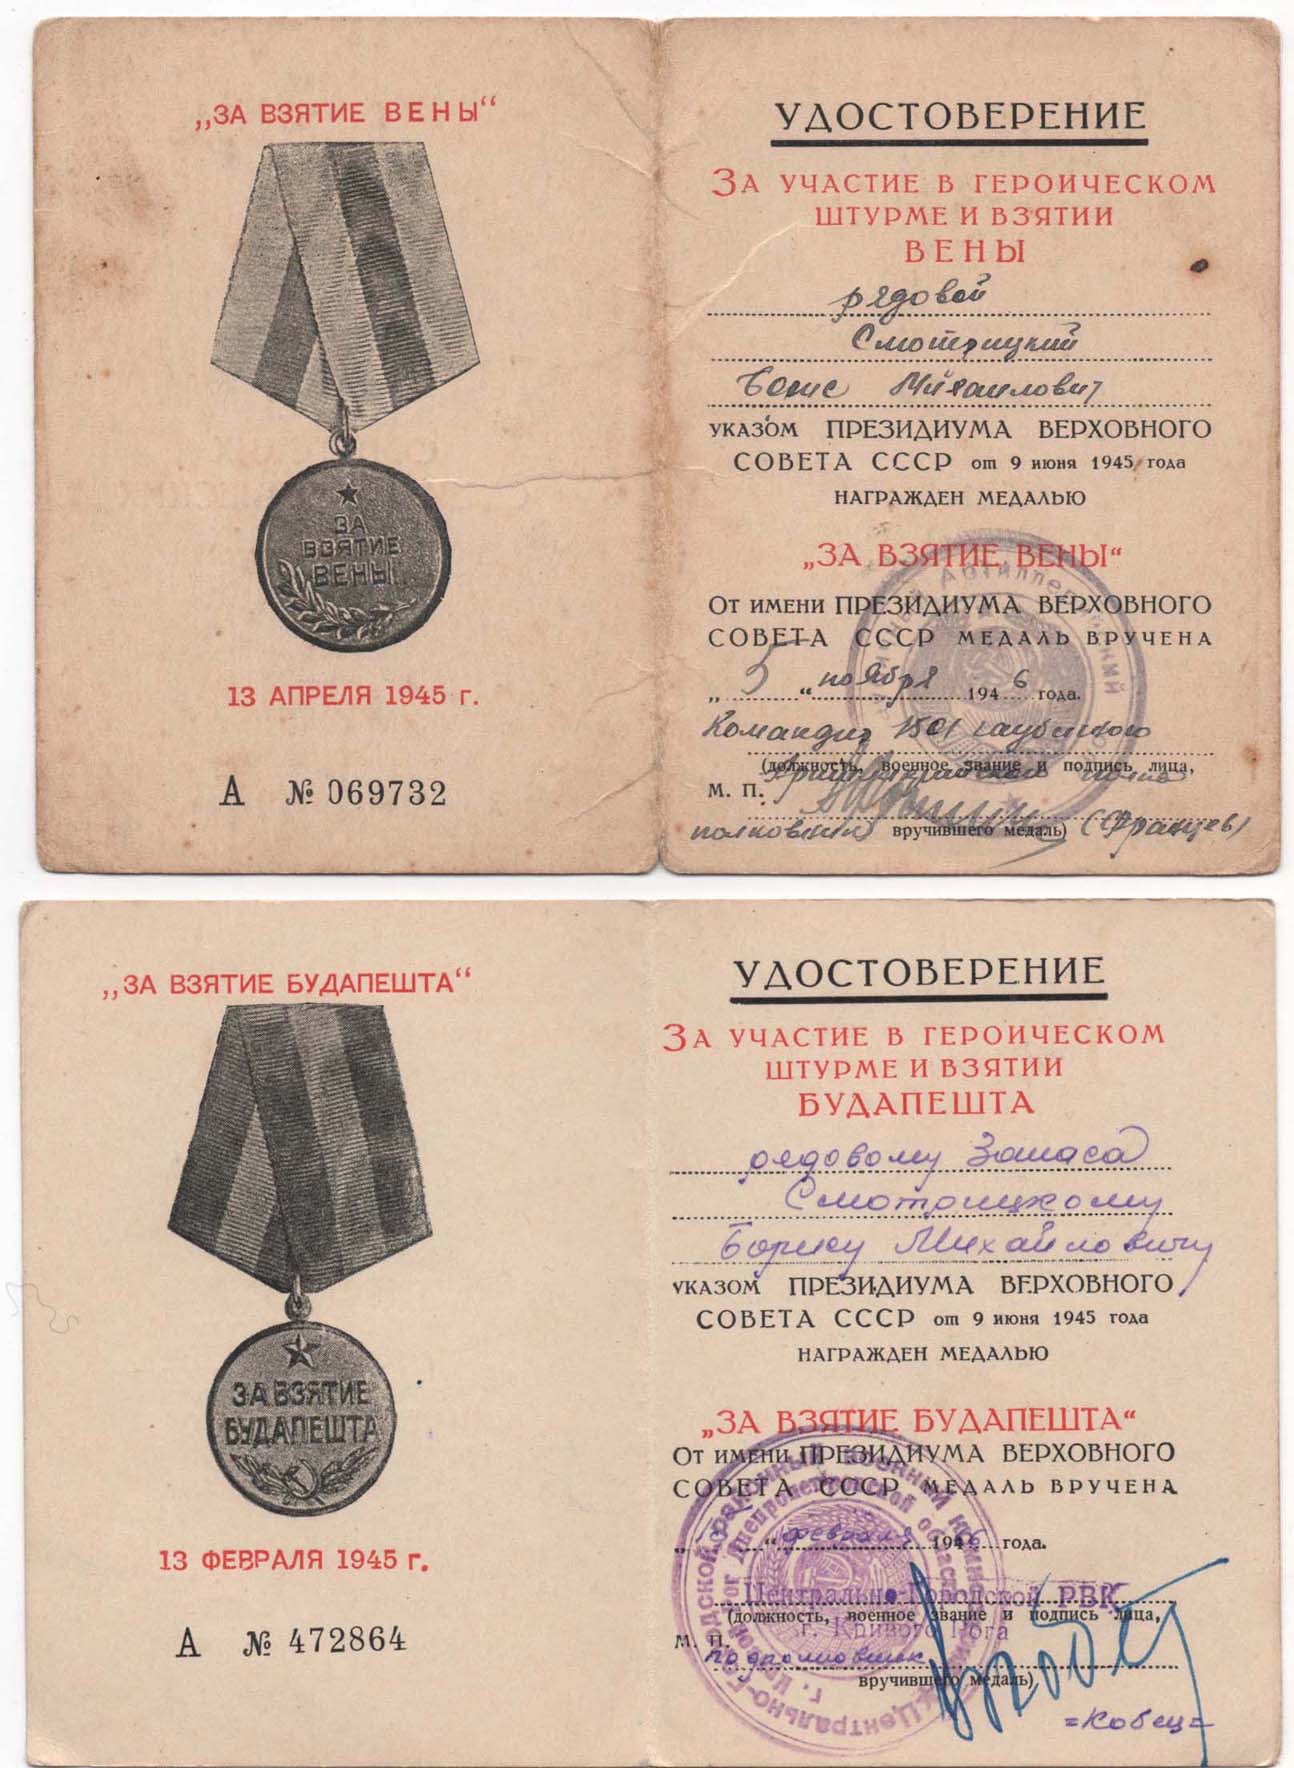 „ЗА ВЗЯТИЕ ВЕНЫ“
ЗА
ВЗЯТИЕ
ВЕНЫ
13 АПРЕЛЯ 1945 г.
А № 069732
УДОСТОВЕРЕНИЕ
ЗА УЧАСТИЕ В ГЕРОИЧЕСКОМ
ШТУРМЕ И ВЗЯТИИ
ВЕНЫ
рядовой
Смотрицкий
Борис Михайлович
УКАЗОМ ПРЕЗИДИУМА ВЕРХОВНОГО
СОВЕТА СССР от 9 июня 1945 года
НАГРАЖДЕН МЕДАЛЬЮ
„ЗА ВЗЯТИЕ ВЕНЫ“
ОТ ИМЕНИ ПРЕЗИДИУМА ВЕРХОВНОГО
СОВЕТА СССР МЕДАЛЬ ВРУЧЕНА
„ 5 “ ноября 1946 года.
Командир 1501 гаубичного
(должность, военное звание и подпись лица,
Артиллерийского полка
М. П.
полковник вручившего медаль) (Францев)
„ЗА ВЗЯТИЕ БУДАПЕШТА“
ЗА ВЗЯТИЕ
БУДАПЕШТА
13 ФЕВРАЛЯ 1945 г.
А № 472864
УДОСТОВЕРЕНИЕ
ЗА УЧАСТИЕ В ГЕРОИЧЕСКОМ
ШТУРМЕ И ВЗЯТИИ
БУДАПЕШТА
рядовому запаса
Смотрицкому
Борису Михайловичу
УКАЗОМ ПРЕЗИДИУМА ВЕРХОВНОГО
СОВЕТА СССР от 9 июня 1945 года
НАГРАЖДЕН МЕДАЛЬЮ
„ЗА ВЗЯТИЕ БУДАПЕШТА“
ОТ ИМЕНИ ПРЕЗИДИУМА ВЕРХОВНОГО
СОВЕТА СССР МЕДАЛЬ ВРУЧЕНА
“ февраля 1946 года.
Центрально-Городской РВК
(должность, военное звание и подпись лица,
г. Кривого Рога
М. П.
подполковник
вручившего медаль)
=Кобец=